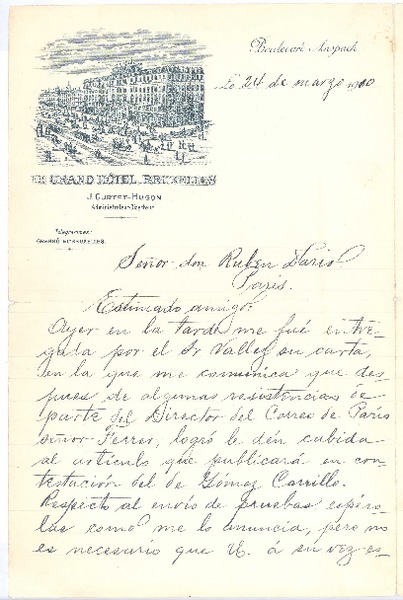 Boulevard Anspach
Le 24 de marzo 1900
GRAND HÔTEL BRUXELLES
J. CURTET-HUGON
Administrateur-Directeur
Télégrammes:
GRAND HÔTEL BRUXELLES.
Señor don Ruben Dario
Paris.
Estimado amigo:
Ayer en la tarde me fué entre-
gada por el Sr Valley su carta,
en la que me comunica que des-
pues de algunas resistencias de
parte del Director del Correo de Paris
señor Ferrer, logró le den cabida
al artículo que publicará en con-
testacion del de Gómez Carrillo.
Respecto al envío de pruebas espéro-
las como me lo anuncia, pero no
es necesario que U. á su vez es-